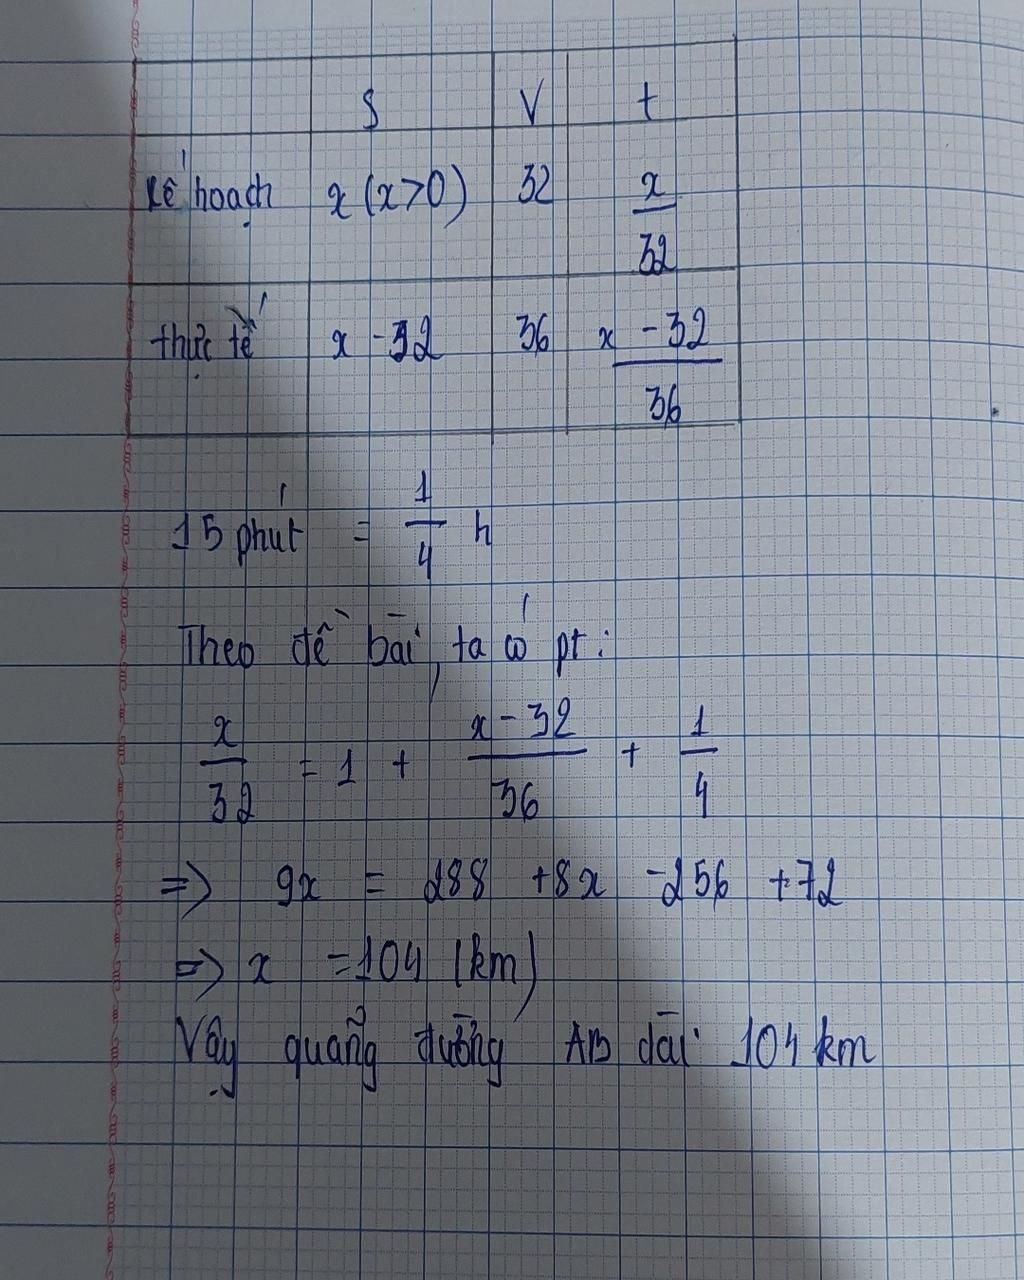 S V t
kế hoạch x (x>0) 32 x/32
thực tế x - 32 36 x - 32/36
15 phút = 1/4 h
Theo đề bài, ta có pt:
x/32 = 1 + x - 32/36 + 1/4
=> 9x = 288 + 8x - 256 + 72
=> x = 104 (km)
Vậy quãng đường AB dài 104 km